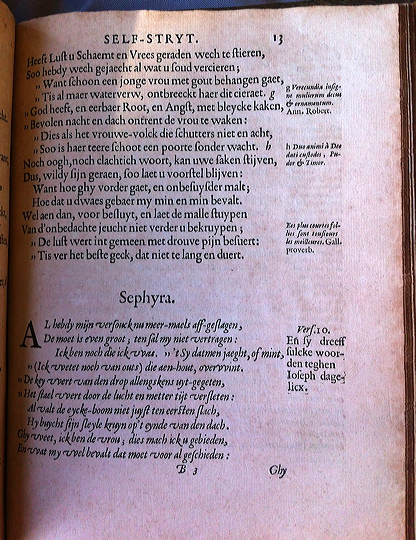 SELF-STRYT. 13
Heeft Lust u Schaemt en Vrees geraden wech te stieren,
Soo hebdy wech gejaecht al wat u soud vercieren;
„ Want schoon een jonge vrou met gout behangen gaet,
„ Tis al maer waterverw, ontbreeckt haer dit cieraet. g
„ God heeft, en eerbaer Root, en Angst, met bleycke kaken,
„ Bevolen nacht en dach ontrent de vrou te waken:
„ Dies als het vrouwe-volck die schutters niet en acht,
„ Soo is haer teere schoot een poorte sonder wacht. h
Noch oogh, noch dachtich woort, kan uwe saken stijven,
Dus, wildy sijn geraen, soo laet u voorstel blijven:
Want hoe ghy vorder gaet, en onbesuysder malt;
Hoe dat u dwaes gebaer my min en min bevalt.
Wel aen dan, voor besluyt, en laet de malle stuypen
Van d'onbedachte jeucht niet verder u bekruypen;
„ De lust wert int gemeen met drouve pijn besuert:
„ Tis ver het beste geck, dat niet te lang en duert.
g Verecundia insigne mulierum decus & ornamentum. Ann. Robert.
h Duo animi à Deo dati custodes, Pudor & Timor.
Les plus courtes folies sont tousiours les meilleures. Gall. proverb.
Sephyra.
AL hebdy mijn versouck nu meer-maels aff-geslagen,
De moet is even groot; ten sal my niet vertragen:
Ick ben noch die ick was. „ 't Sy datmen jaeght, of mint,
„ (Ick weet noch van ous) die aen-hout, overwint.
„ De key wert van den drop allengskens uyt-gegeten,
„ Het stael wert door de lucht en metter tijt versleten:
Al valt de eycke-boom niet juyst ten eersten slach,
Hy buycht sijn steyle kruyn op't eynde van den dach.
Ghy weet, ick ben de vrou; dies mach ick u gebieden,
En wat my wel bevalt dat moet voor al geschieden:
Vers. 10.
En sy dreeff
sulcke woor-
den teghen
Ioseph dage-
licx.
B 3 Ghy